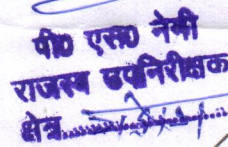 पी0 एस0 नेगी
राजस्व उपनिरीक्षक
क्षेत्र..............